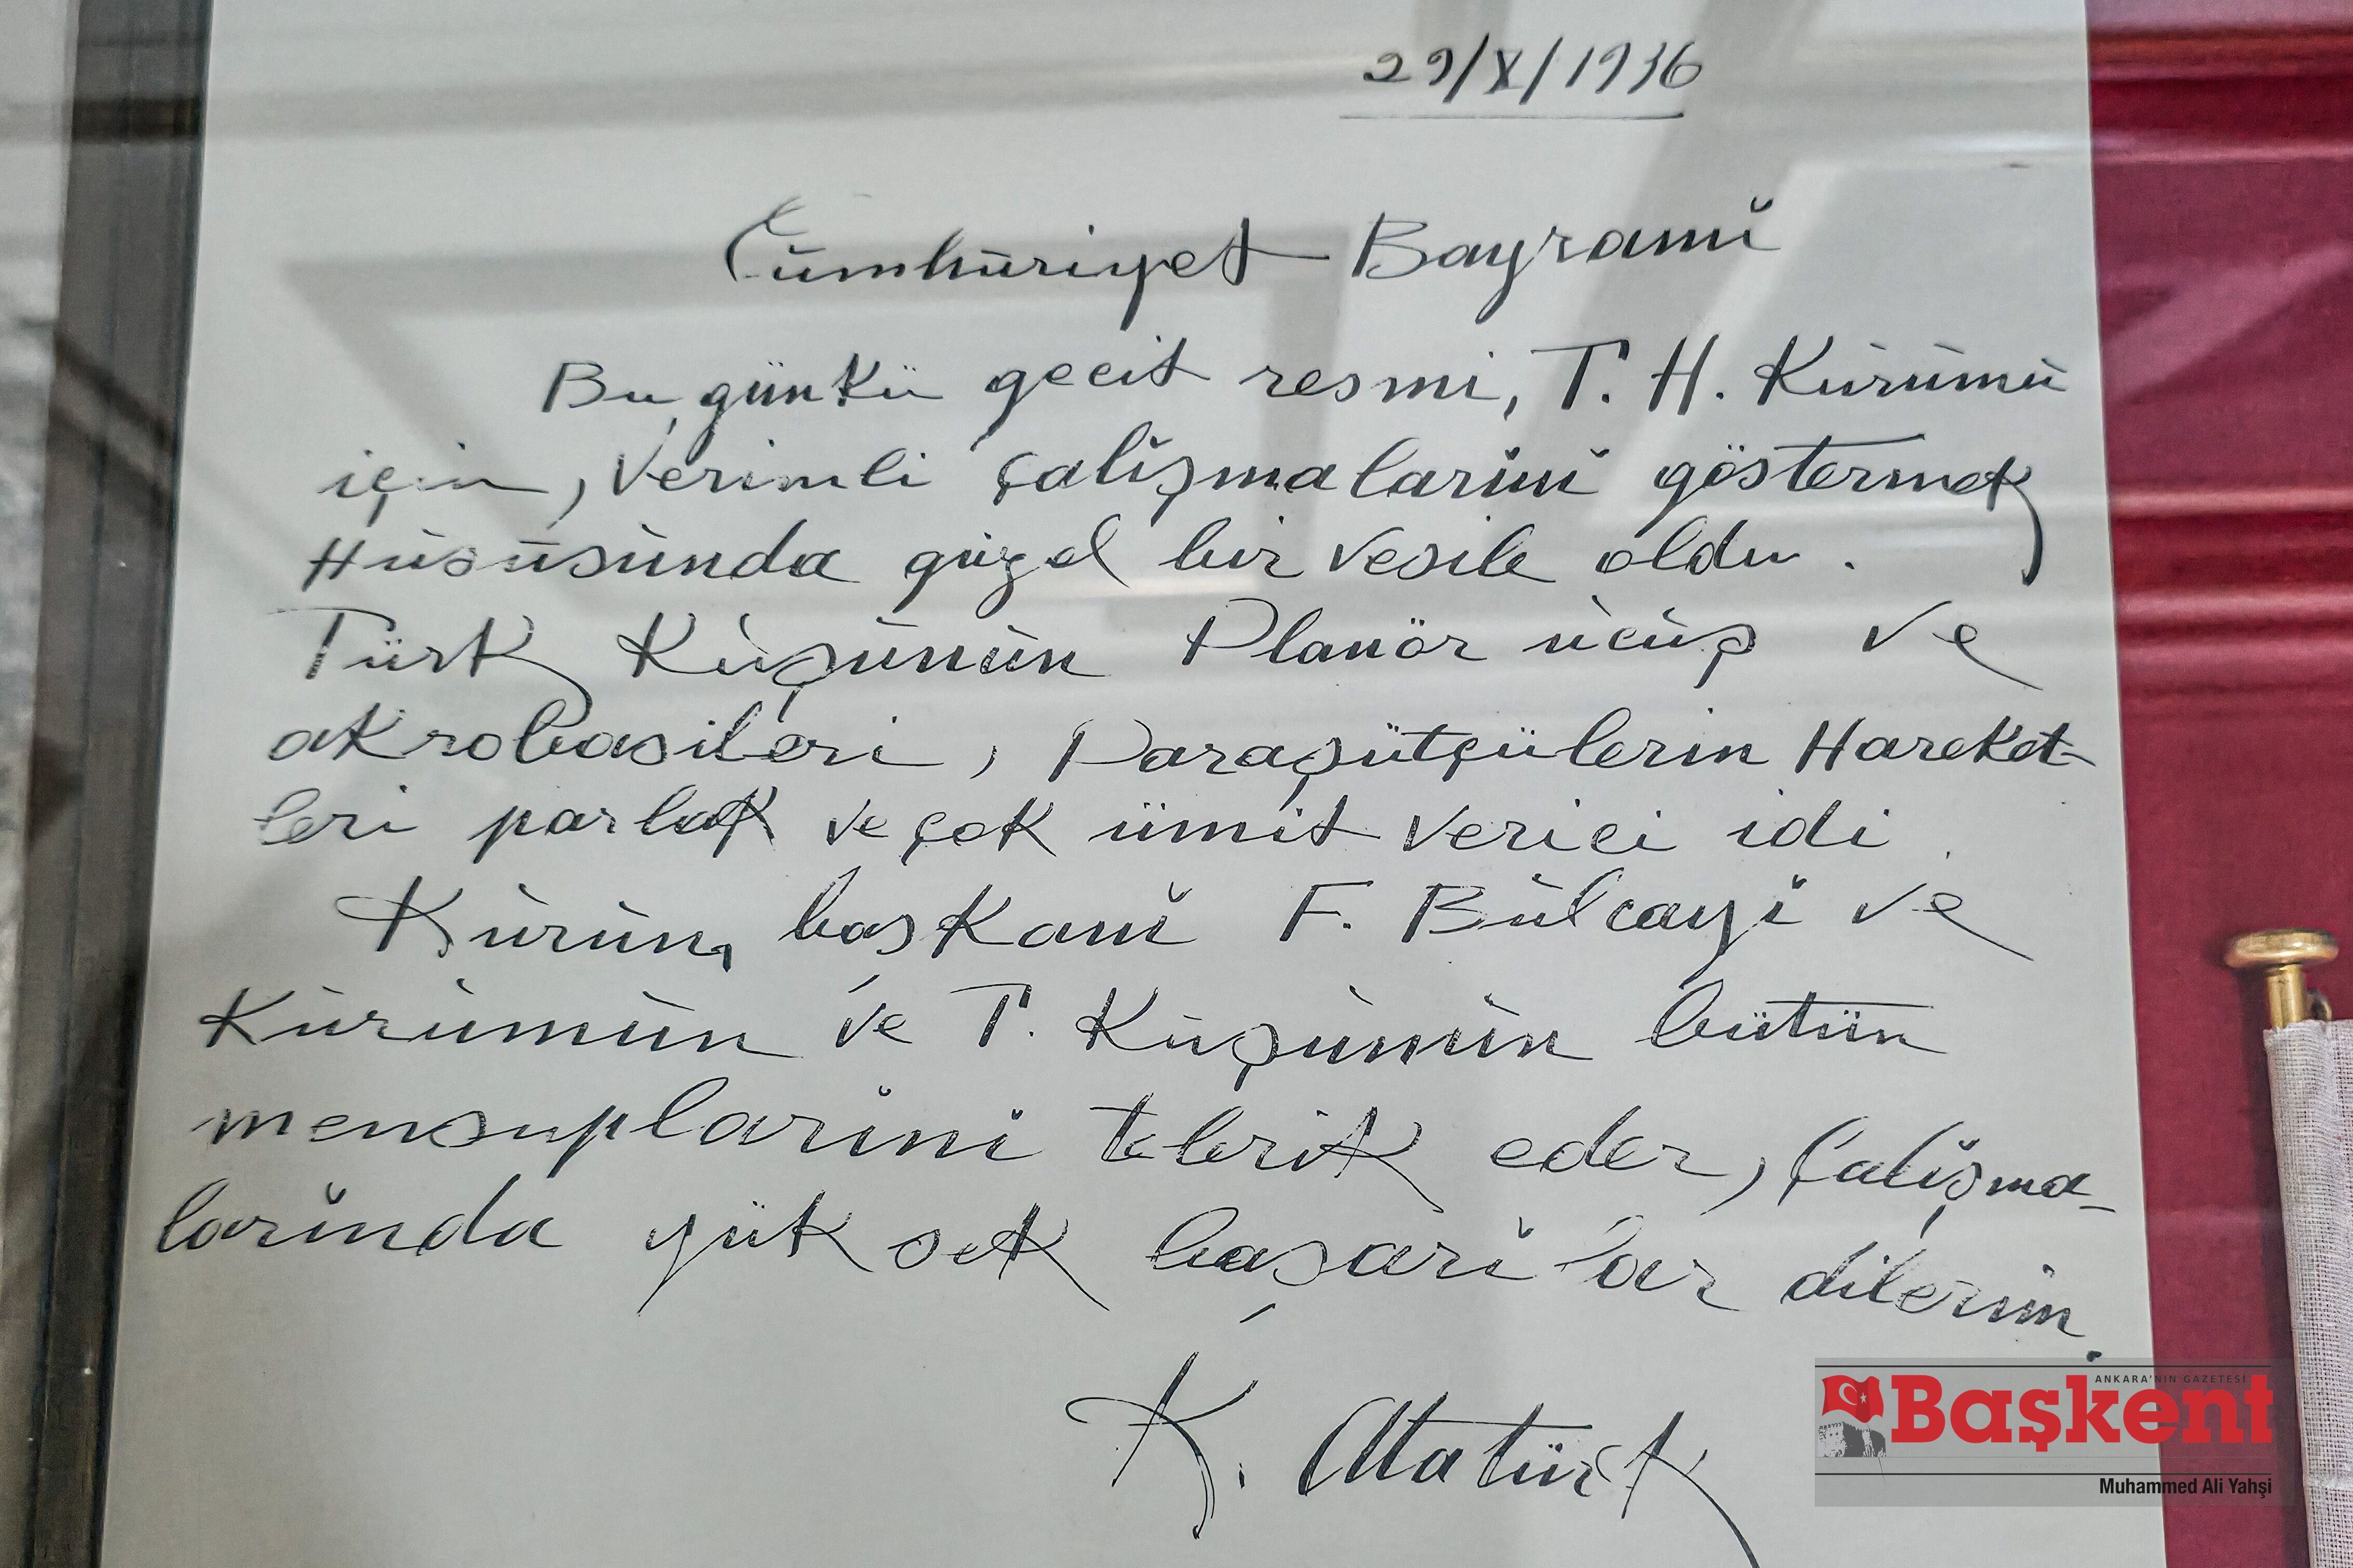 29/X/1936
Cümhuriyet Bayramı
Bu günkü geçit resmi, T. H. Kurumu
için, verimli çalışmalarını göstermek
Hususunda güzel bir vesile oldu.
Türk Kuşunun Planör uçuş ve
akrobasileri, Paraşütçülerin Hareket-
leri parlak ve çok ümit verici idi.
Kurum başkanı F. Bulcayı ve
Kurumun ve T. Kuşunun bütün
mensuplarını tebrik eder, çalışma-
larında yüksek başarılar dilerim.
K. Atatürk
ANKARA'NIN GAZETESİ
Başkent
Muhammed Ali Yahşi